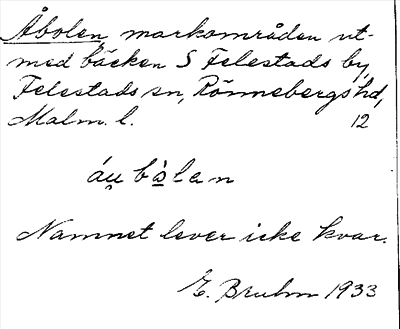 Åbolen markområden ut-
med bäcken S Felestads by,
Felestads sn, Rönnebergs hd,
Malm. l. 12
áu̯ bòlen
Namnet lever icke kvar.
E. Bruhn 1933